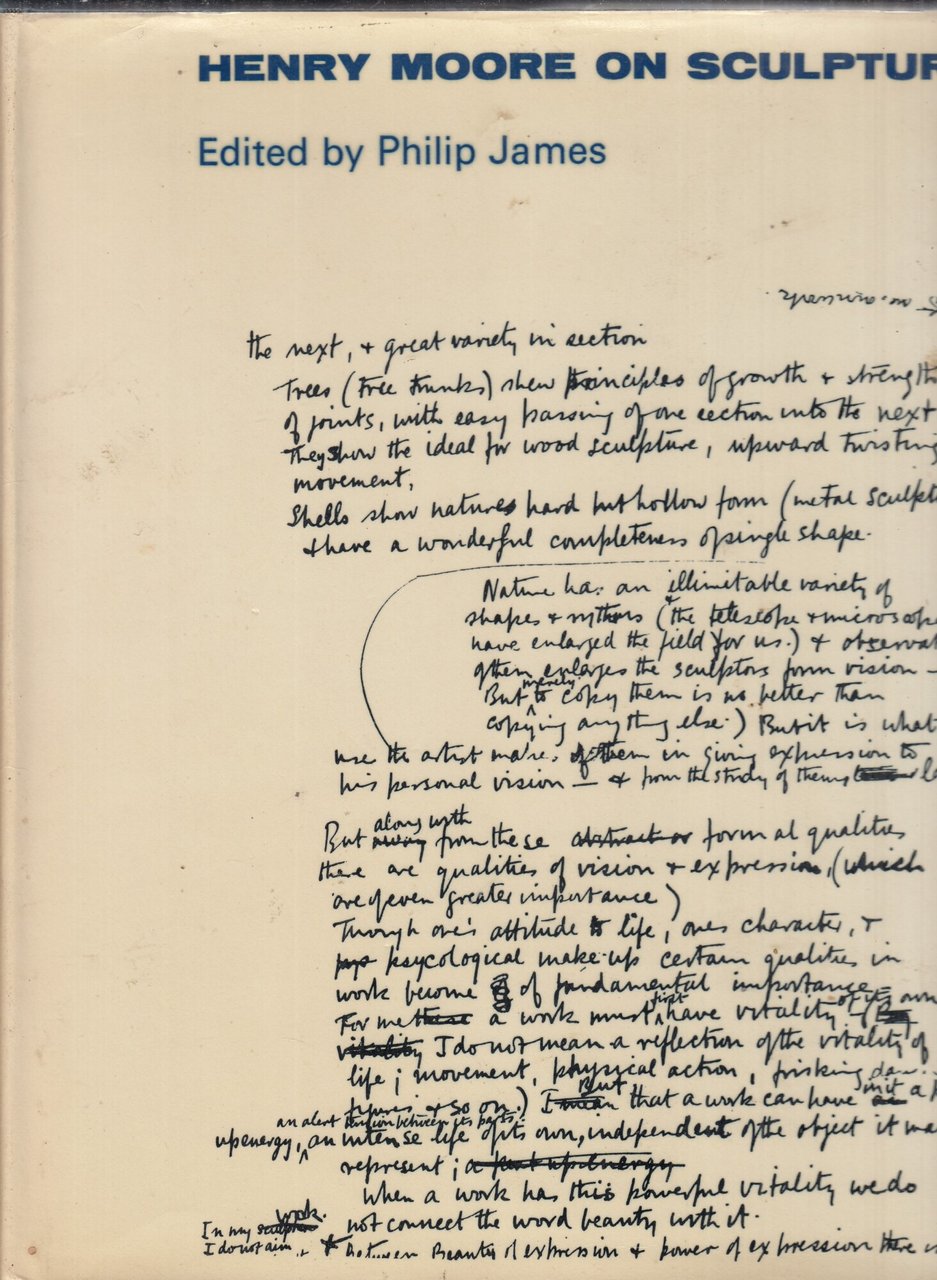 HENRY MOORE ON SCULPTUR
Edited by Philip James
the next, & great variety in section
Trees (tree trunks) shew principles of growth & strength
of joints, with easy passing of one section into the next
They show the ideal for wood sculpture, upward twisting
movement,
Shells show natures hard but hollow form (metal sculpt
& have a wonderful completeness of single shape.
Nature has an illimitable variety of
shapes & rythms (& the telescope & microscope
have enlarged the field for us.) & observat
of them enlarges the sculptors form vision –
But merely to copy them is no better than
copying anything else.) But it is what
use the artist makes of them in giving expression to
his personal vision – & from the study of them
But along with away from these abstract or formal qualities
there are qualities of vision & expression, (which
are of even greater importance)
Through one's attitude to life, ones character, &
psycological make-up certain qualities in
work become of fundamental importance
For me these a work must first have vitality of its own
vitality I do not mean a reflection of the vitality of
life; movement, physical action, frisking
figures & so on.) I mean But that a work can have in it a
an alert tension between its parts,
upenergy, an intense life of its own, independent of the object it ma
represent; a pent up energy
When a work has this powerful vitality we do
not connect the word beauty with it.
In my work.
I do not aim
Between Beauty of expression & power of expression there